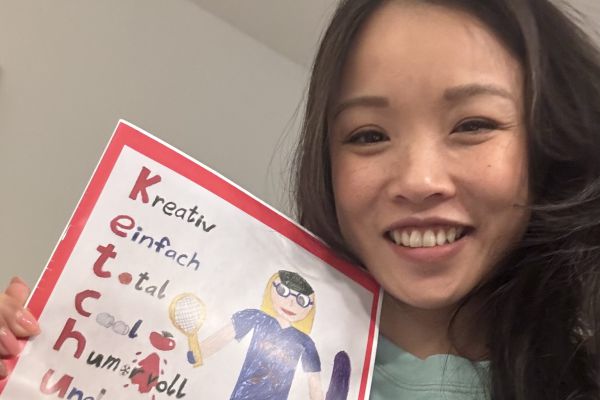 Kreativ
einfach
total
cool
humorvoll